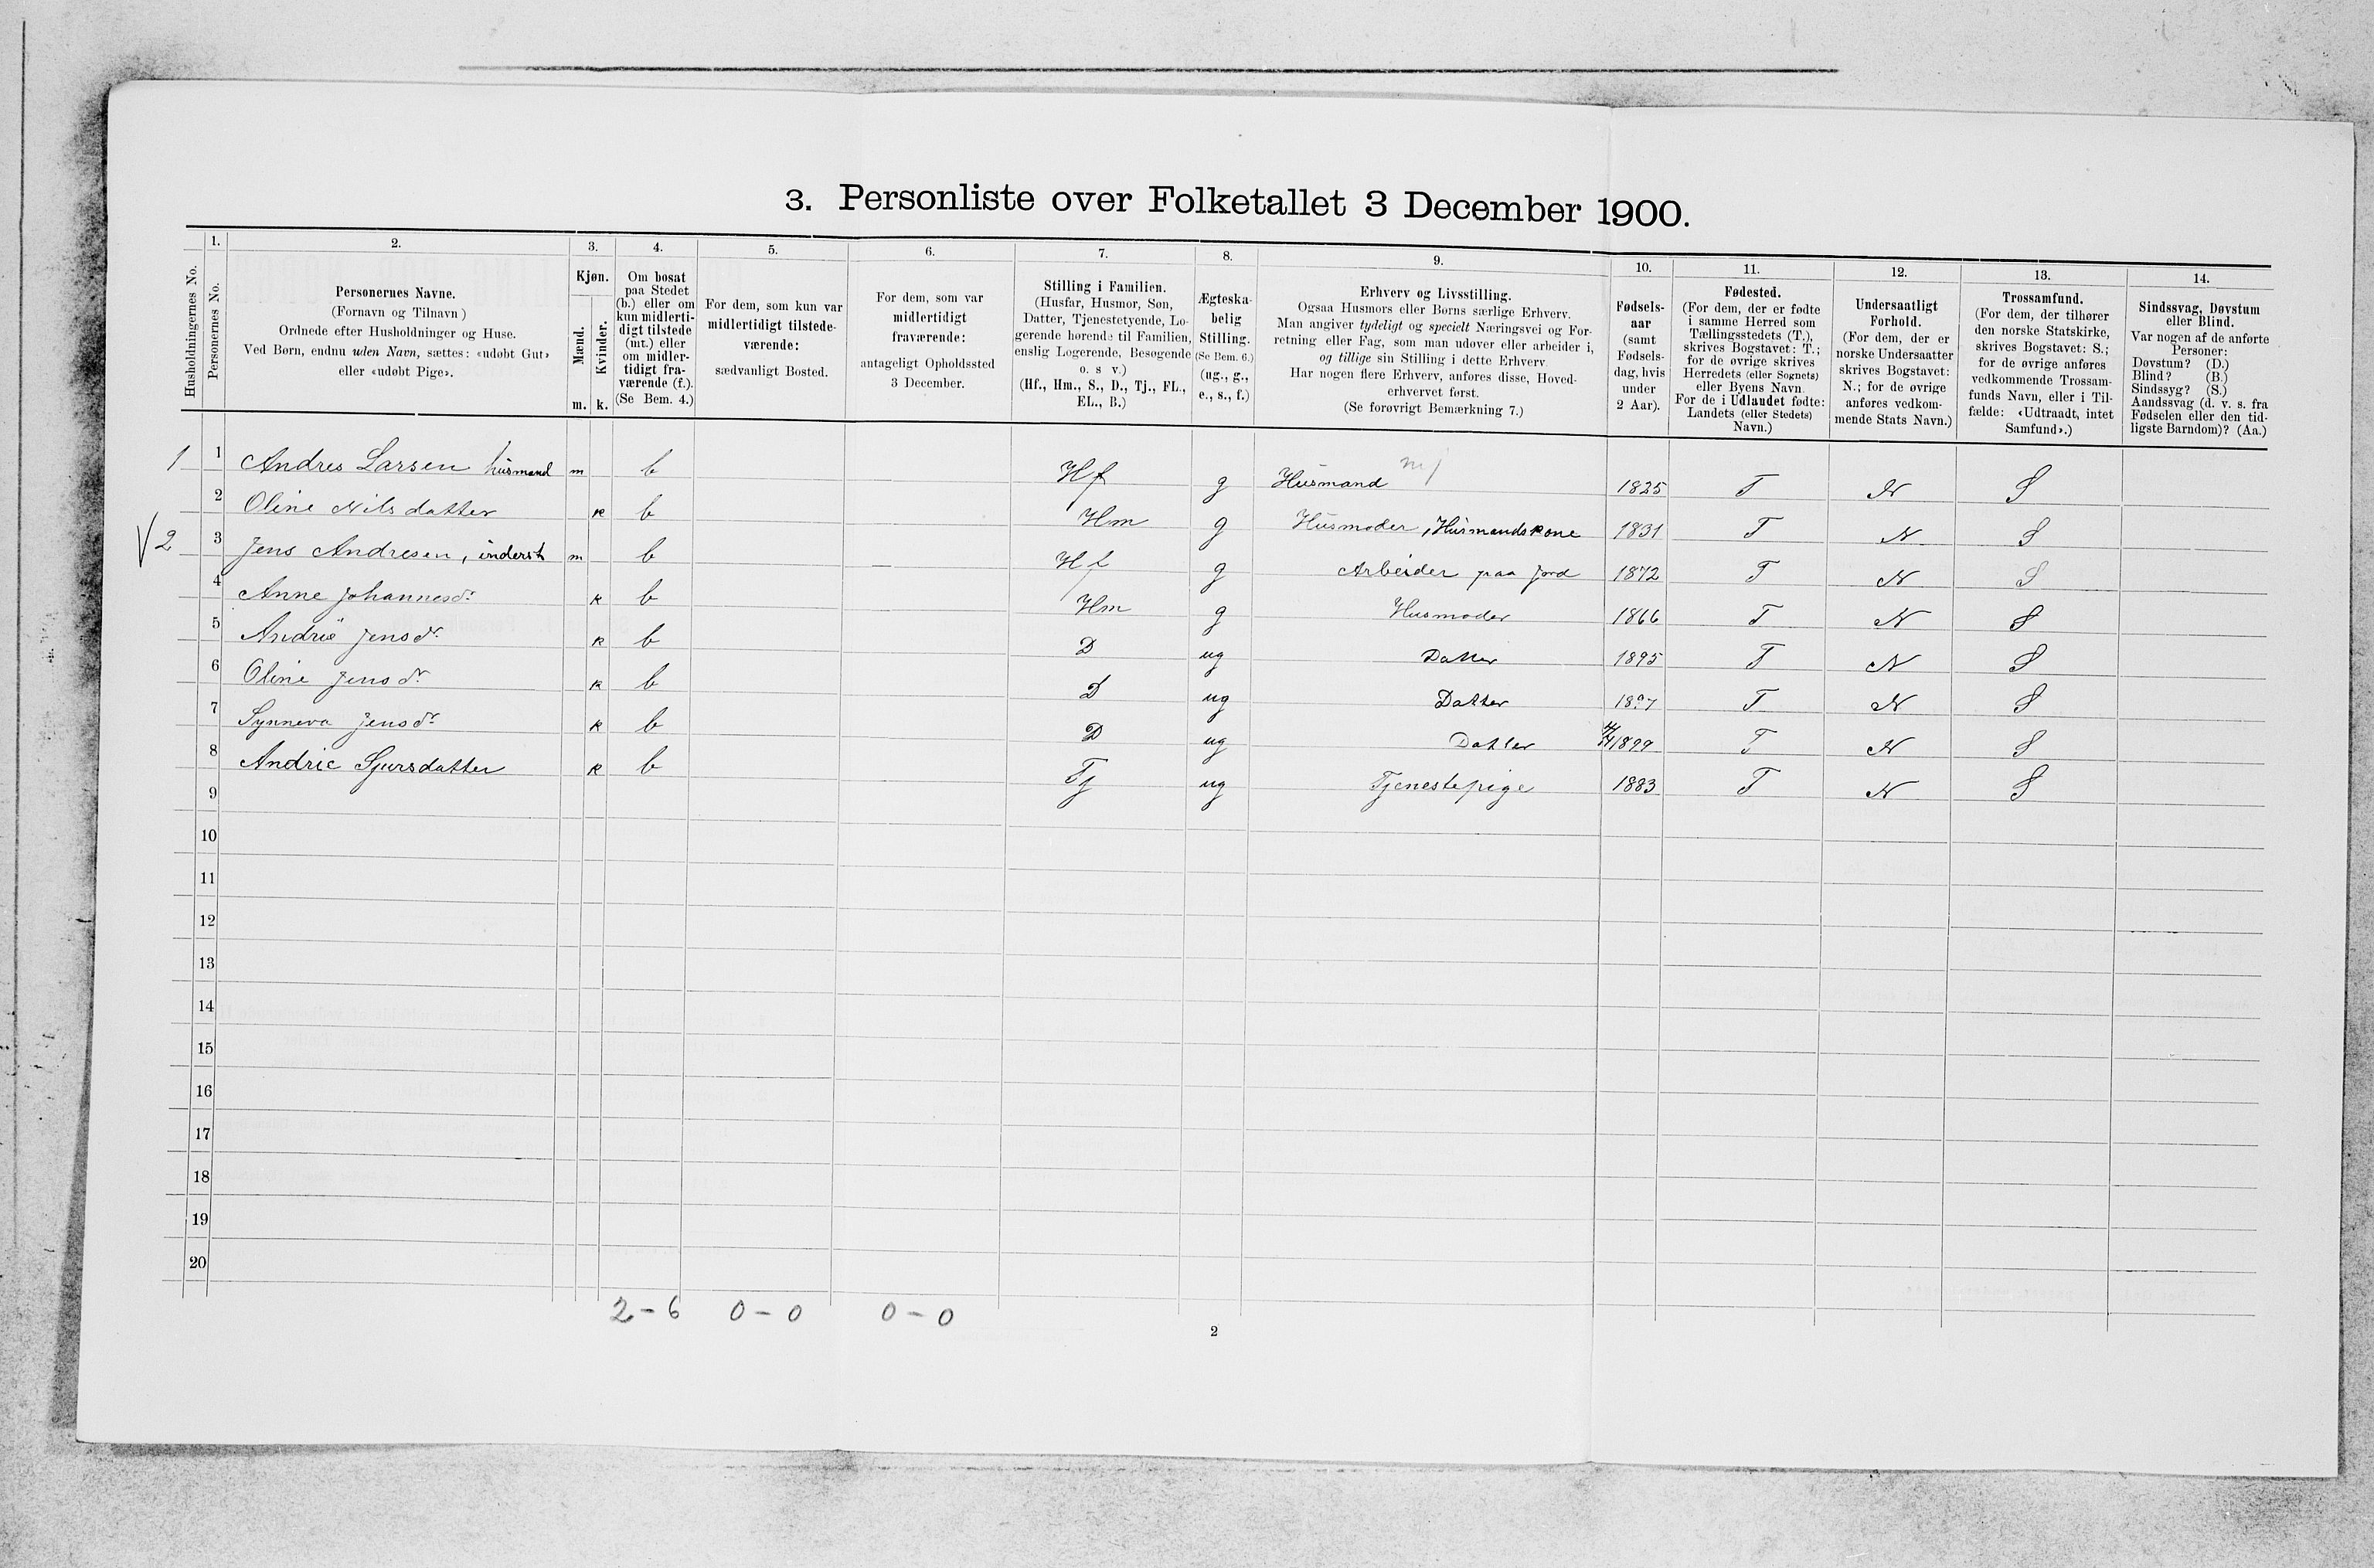 3. Personliste over Folketallet 3 December 1900.
1. 2. 3. 4. 5. 6. 7. 8. 9. 10. 11. 12. 13. 14.
Husholdningernes No.
Personernes No.
Personernes Navne.
(Fornavn og Tilnavn)
Ordnede efter Husholdninger og Huse.
Ved Børn, endnu uden Navn, sættes: «udøbt Gut»
eller «udøbt Pige».
Kjøn.
Mænd.
Kvinder.
m. k.
Om bosat
paa Stedet
(b.) eller om
kun midlerti-
digt tilstede
(mt.) eller
om midler-
tidigt fra-
værende (f.).
(Se Bem. 4.)
For dem, som kun var
midlertidigt tilstede-
værende:
sædvanligt Bosted.
For dem, som var
midlertidigt
fraværende:
antageligt Opholdssted
3 December.
Stilling i Familien.
(Husfar, Husmor, Søn,
Datter, Tjenestetyende, Lo-
gerende hørende til Familien,
enslig Logerende, Besøgende
o. s v.)
(Hf., Hm., S., D., Tj., FL.,
EL., B.)
Ægteska-
belig
Stilling.
(Se Bem. 6.)
(ug., g.,
e., s., f.)
Erhverv og Livsstilling.
Ogsaa Husmors eller Børns særlige Erhverv.
Man angiver tydeligt og specielt Næringsvei og For-
retning eller Fag, som man udøver eller arbeider i,
og tillige sin Stilling i dette Erhverv.
Har nogen flere Erhverv, anføres disse, Hoved-
erhvervet først.
(Se forøvrigt Bemærkning 7.)
Fødsels-
aar
(samt
Fødsels-
dag, hvis
under
2 Aar).
Fødested.
(For dem, der er fødte
i samme Herred som
Tællingsstedets (T.),
skrives Bogstavet: T.;
for de øvrige skrives
Herredets (eller Sognets)
eller Byens Navn.
For de i Udlandet fødte:
Landets (eller Stedets)
Navn.)
Undersaatligt
Forhold.
(For dem, der er
norske Undersaatter
skrives Bogstavet:
N.; for de øvrige
anføres vedkom-
mende Stats Navn.)
Trossamfund.
(For dem, der tilhører
den norske Statskirke,
skrives Bogstavet: S.;
for de øvrige anføres
vedkommende Trossam-
funds Navn, eller i Til-
fælde: «Udtraadt, intet
Samfund».)
Sindssvag, Døvstum
eller Blind.
Var nogen af de anførte
Personer:
Døvstum? (D.)
Blind? (B.)
Sindssyg? (S.)
Aandssvag (d. v. s. fra
Fødselen eller den tid-
ligste Barndom)? (Aa.)
1 1 Andres Larsen husmand m b Hf g Husmand mj 1825 T N S
2 Oline Nilsdatter k b Hm g Husmoder, Husmandskone 1831 T N S
V 2 3 Jens Andresen, inderst m b Hf g Arbeider paa Jord 1872 T N S
4 Anne Johannesdr k b Hm g Husmoder 1866 T N S
5 Andrie Jensdr k b D ug Datter 1895 T N S
6 Oline Jensdr k b D ug Datter 1897 T N S
7 Synneva Jensdr k b D ug Datter 1899 T N S
8 Andrie Sjursdatter k b Tj ug Tjenestepige 1883 T N S
9
10
11
12
13
14
15
16
17
18
19
20
2-6 0-0 0-0
2